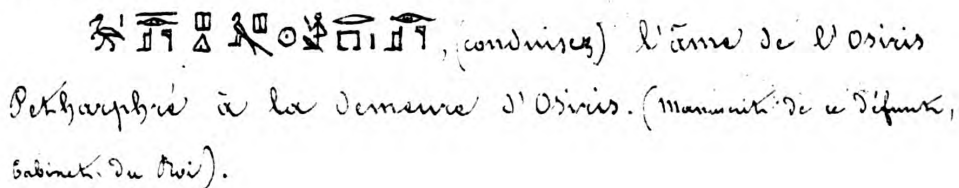 , (conduisez) l'âme de l'Osiris
Petharphré à la demeure d'Osiris. (Manuscrit de ce défunt,
Cabinet du Roi).